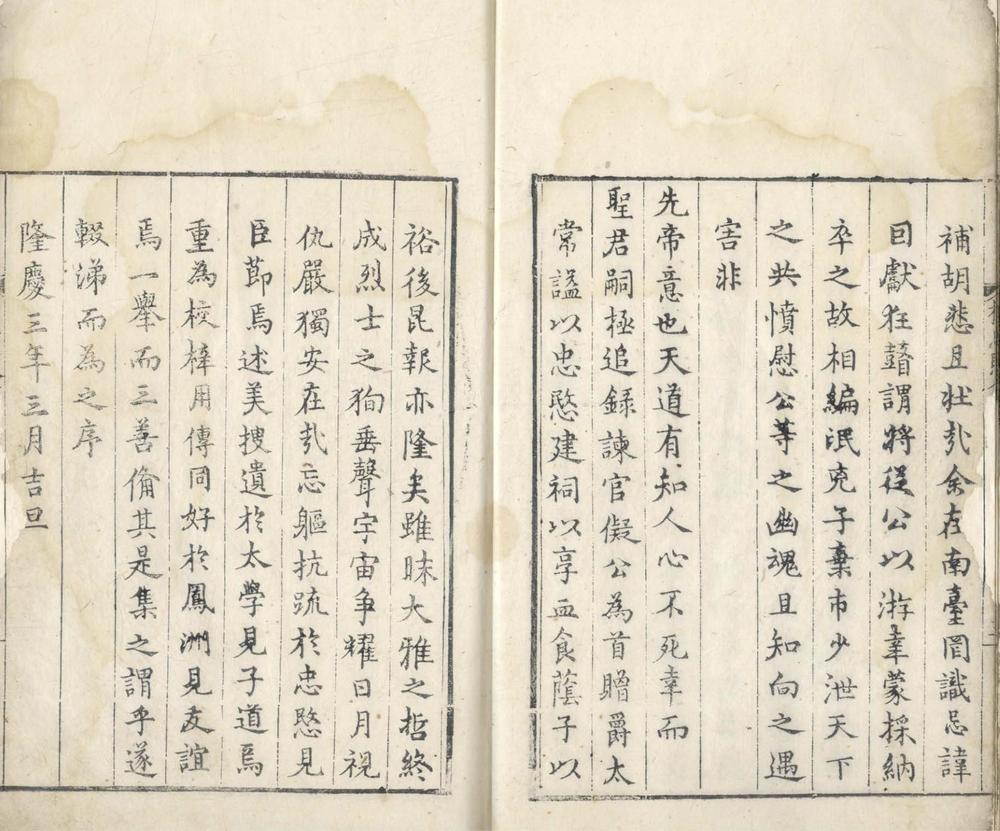 補胡悲且壯㢤余在南臺罔識忌諱
囙獻狂瞽謂將従公以游幸蒙採納
卒之故相編泯兇子棄市少泄天下
之共憤慰公等之幽魂且知向之遇
害非
先帝意也天道有知人心不死幸而
聖君嗣極追録諫官儗公為首贈爵太
常謚以忠愍建祠以享血食蔭子以
裕後昆報亦隆矣雖昧大雅之哲終
成烈士之狥垂聲宇宙争耀日月視
仇嚴獨安在㢤忘軀抗疏於忠愍見
臣莭焉述美搜遺於太學見子道焉
重為校梓用傳同好於鳳洲見友誼
焉一舉而三善俻其是集之謂乎遂
輟涕而為之序
隆慶三年三月吉旦